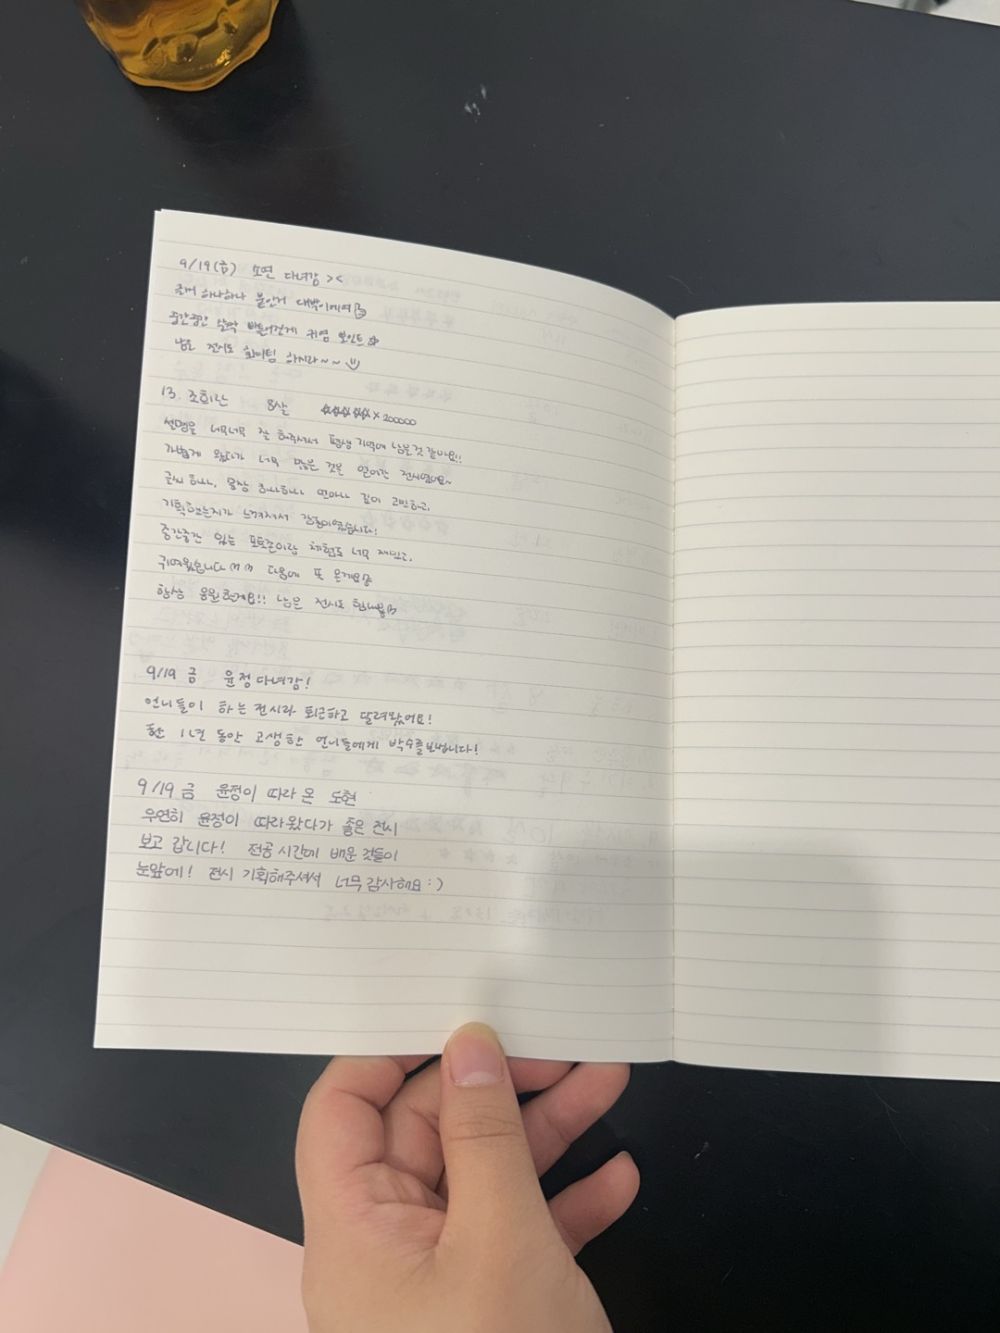 9/19(금) 소연 다녀감 ><
글씨 하나하나 붙인거 대박이에여
중간중간 살짝 비틀어진게 귀염 포인트
남은 전시도 화이팅 하시라~~
13. 조희란 8살 ☆☆☆☆☆ × 200000
설명을 너무너무 잘 해주셔서 평생 기억에 남을 것 같아요!!
가볍게 왔다가 너무 많은 것을 얻어간 전시였어요~
글씨 하나, 문장 하나하나 얼마나 깊이 고민하고,
기획했는지가 느껴져서 감동이였습니다!
중간중간 있는 포토존이랑 체험도 너무 재밌고,
귀여웠습니다 ㅎㅎ 다음에 또 올게요
항상 응원할게요!! 남은 전시도
9/19 금 윤정 다녀감!
언니들이 하는 전시라 퇴근하고 달려왔어요!
한 1년 동안 고생한 언니들에게 박수를 보냅니다!
9/19 금 윤정이 따라온 도현
우연히 윤정이 따라왔다가 좋은 전시
보고 갑니다! 전공 시간에 배운 것들이
눈앞에! 전시 기획해주셔서 너무 감사해요 :)